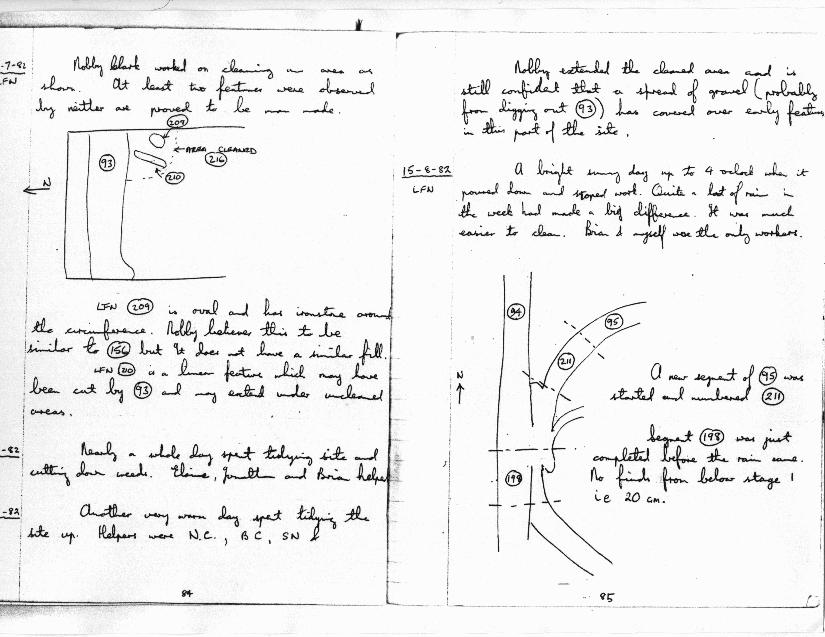 -7-82
LFN
Nobby Clark worked on cleaning an area as
shown. At least two features were observed
by neither are proved to be man made.
209
93
AREA CLEANED
216
N
210
LFN 209 is oval and has ironstone around
the circumference. Nobby believes this to be
similar to 156 but it does not have a similar fill.
LFN 210 is a linear feature which may have
been cut by 93 and may extend under uncleaned
areas.
-82
Nearly a whole day spent tidying site and
cutting down weeds. Elaine, Jonathan and Brian helped
-82
Another very warm day spent tidying the
site up. Helpers were N.C., B C, SN &
84
Nobby extended the cleaned area and is
still confident that a spread of gravel (probably
from digging out 93) has covered over early features
in this part of the site.
15-8-82
LFN
A bright sunny day up to 4 oclock when it
poured down and stoped work. Quite a lot of rain in
the week had made a big difference. It was much
easier to clean. Brian & myself were the only workers.
94
95
211
N
A new segment of 95 was
started and numbered 211
Segment 198 was just
completed before the rain came.
No finds from below stage 1
i.e 20 cm.
198
85